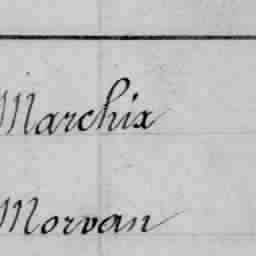 Marchix
Morvan